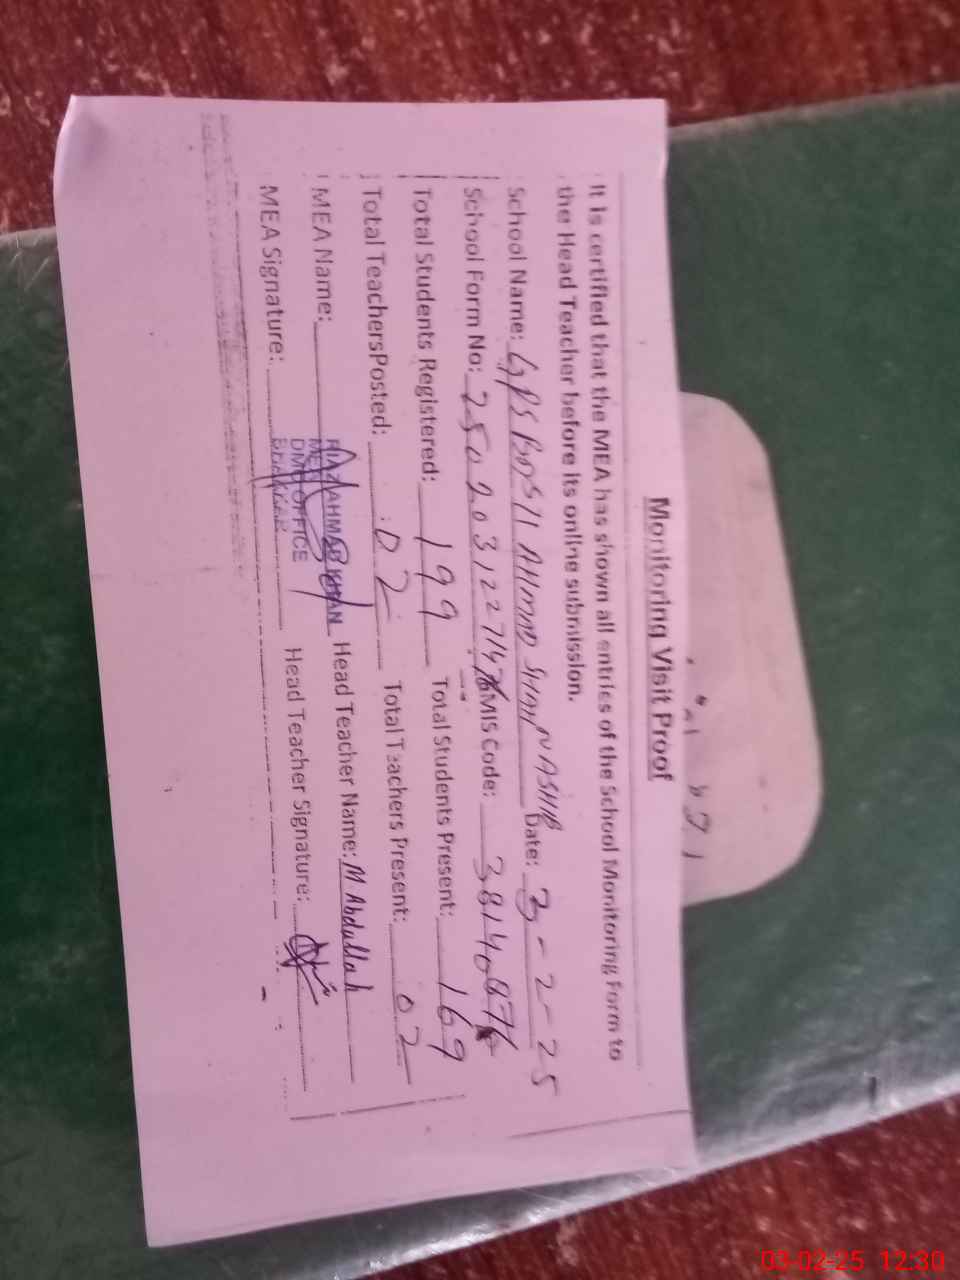 Monitoring Visit Proof
It is certified that the MEA has shown all entries of the School Monitoring Form to
the Head Teacher before its online submission.
School Name: GPS BASTI AHMAD SHAH NASHIB Date: 3-2-25
School Form No: MIS Code:
Total Students Registered: 199 Total Students Present: 169
Total TeachersPosted: 02 Total Teachers Present: 02
MEA Name: RIAZ AHMAD KHAN Head Teacher Name: M. Abdullah
MEA Signature: DMO OFFICE Head Teacher Signature:
03-02-25 12:30